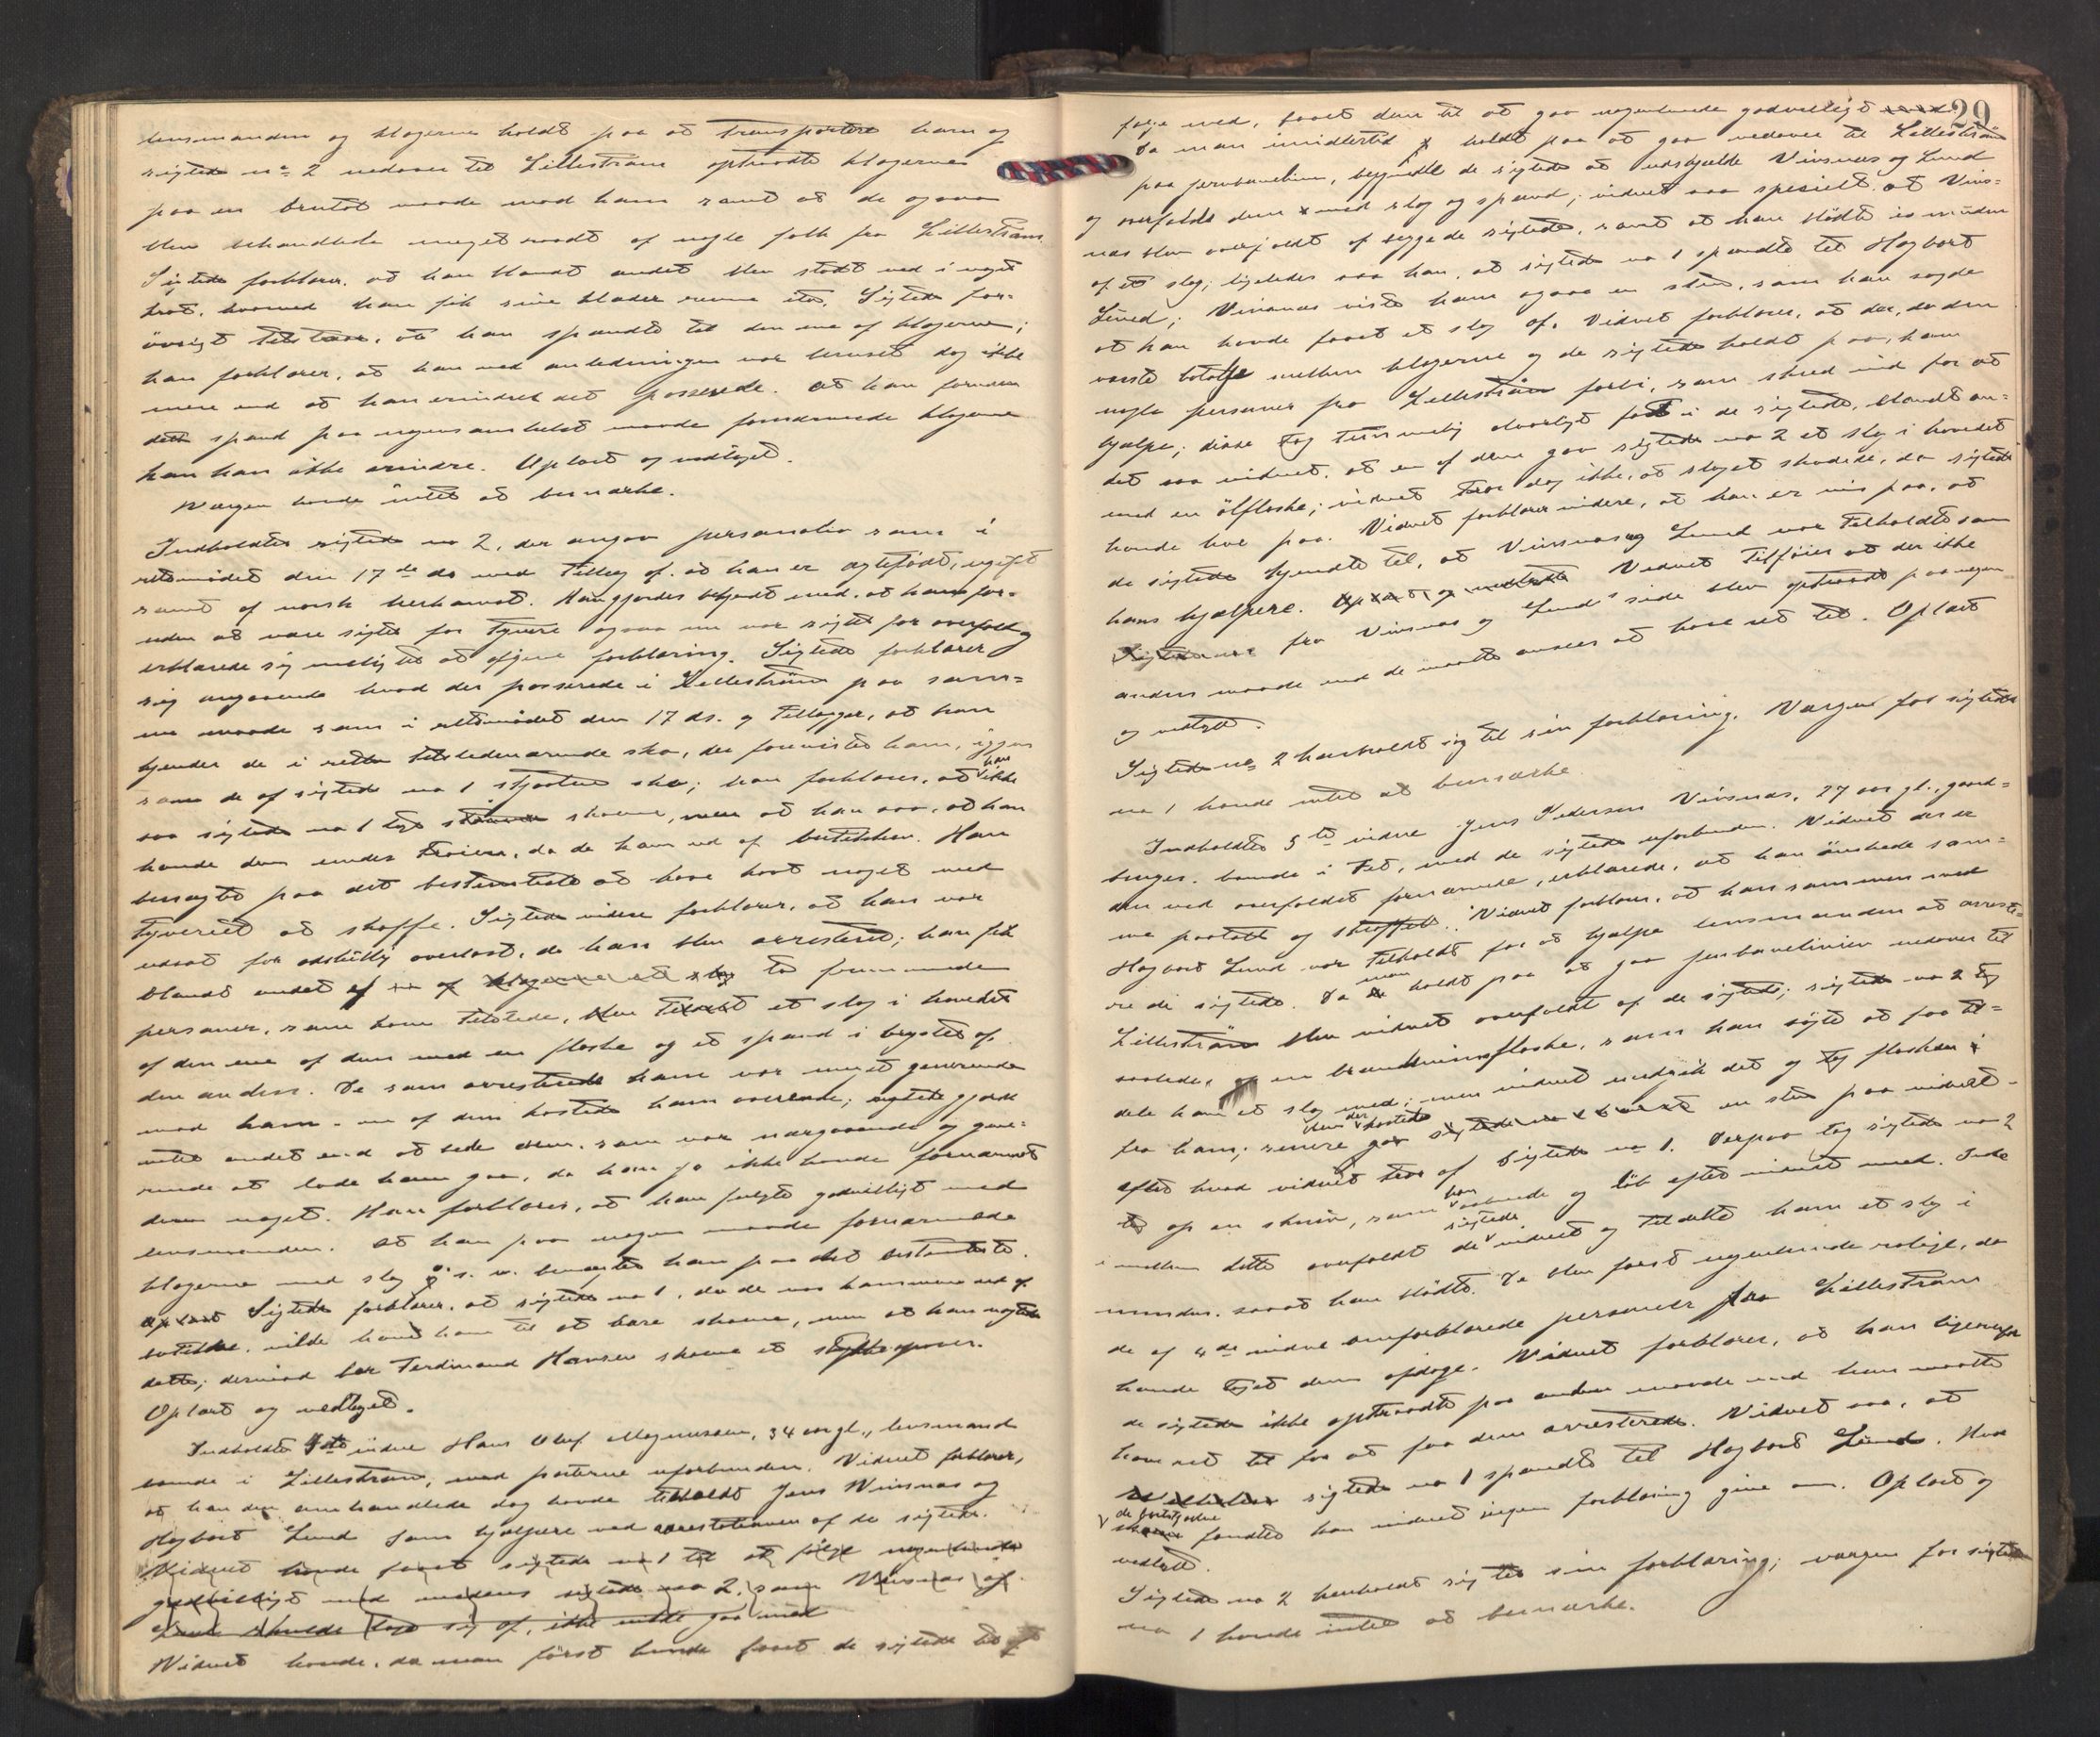 lensmanden og klagerne holdt paa at transportere ham og
sigtede no 2 nedover til Lillestrøm optraadte klagerne
paa en brutal maade mod ham samt at de ogsaa
blev behandlede meget raadt af nogle folk fra Lillestrøm
Sigtede forklarer, at han blandt andet blev stødt ned i noget
krat, hvorved han fik sine klæder revne itu. Sigtede for-
øvrigt tilstaar, at han spændte til den ene af klagerne;
han forklarer, at han ved anledningen var beruset dog ikke
mere end at han erindret det passerede. At han foruden
dette spænd paa nogensomhelst maade fornærmede klagerne
kan han ikke erindre. Oplæst og vedtaget.
Værgen havde intet at bemærke.
Indkaldtes sigtede no 2, der angav personalia som i
retsmødet den 17de ds med tillæg af at han er ægtefødt, ugift
samt af norsk herkomst. Han gjordes bekjendt med, at han for-
uden at være sigtet for tyveri ogsaa nu var sigtet for overfald og
erklærede sig villig til at afgive forklaring. Sigtede forklarer
sig angaaende hvad der passerede i Lillestrøm paa sam-
me maade som i retsmødet den 17 ds. og tillægger, at han
kjender de i retten tilstedeværende sko, der forevistes ham, igjen
som de af sigtede no 1 stjaalne sko; han forklarer, at han ikke
saa sigtede no 1 tage skoene, men at han saa, at han
havde dem under trøien, da de kom ud af butikken. Han
benegtet paa det bestemteste at have havt noget med
tyveriet at skaffe. Sigtede videre forklarer, at han var
udsat for adskillig overlast, da han blev arresteret; han fik
blandt andet af en af klagerne et slag to fremmede
personer, som kom tilstede, blev tildelt et slag i hovedet
af den ene af dem med en flaske og et spænd i brystet af
den anden. De som arresterede ham var meget generende
mod ham - en af dem kastede ham overende; sigtede gjorde
intet andet end at bede dem, som var nærgaaende og gene-
rende at lade ham gaa, da han jo ikke havde fornærmet
dem noget. Han forklarer, at han fulgte godvilligt med
lensmanden. At han paa nogen maade fornærmede
klagerne med slag o. s. v. benegtes han paa det bestemteste.
Oplæst Sigtede forklarer, at sigtede no 1, da de var kommen ud af
butikken, vilde have ham til at bære skoene, men at han nægtede
dette; derimod bar Ferdinand Hansen skoene et stykke ovover.
Oplæst og vedtaget.
Indkaldtes 4de vidne Hans Oluf Magnussen, 34 aar gl., lensmand
boende i Lillestrøm, med parterne uforbunden. Vidnet forklarer,
at han den omhandlede dag havde tilkaldt Jens Vinsnæs og
Hagbart Lund som hjælpere ved arrestationen af de sigtede.
Vidnet havde faaet sigtede no 1 til at følge nogenlunde
godvilligt med medens sigtede no 2, som Vinsnæs og
Lund skulde tage sig af, ikke vilde gaa med
Vidnet havde, da man først havde faaet de sigtede til at
29
følge med, faaet dem til at gaa nogenlunde godvilligt
Da man imidlertid holdt paa at gaa nedover til Lillestrøm
paa jernbanelinien, begyndte de sigtede at udskjælde Vinsnæs og Lund
og overfaldt dem med slag og spænd; vidnet saa specielt, at Vins-
næs blev overfaldt af begge de sigtede, samt at han blødte i munden
af et slag; ligeledes saa han, at sigtede no 1 spændte til Hagbart
Lund; Vinsnæs viste ham ogsaa en sten, som han sagde
at han havde faaet et slag af. Vidnet forklarer, at der, da den
værste batalje mellem klagerne og de sigtede holdt paa, kom
nogle personer fra Lillestrøm forbi, som skred ind for at
hjælpe; disse tog temmelig alvorligt fat i de sigtede, blandt an-
det saa vidnet, at en af dem gav sigtede no 2 et slag i hovedet
med en ølflaske; vidnet tror dog ikke, at slaget skadede, da sigtede
havde hue paa. Vidnet forklarer videre, at han er vis paa, at
de sigtede kjendte til, at Vinsnæs og Lund var tilkaldt som
hans hjælpere. Oplæst og vedtaget Vidnet tilføier at der ikke
fra Vinsnæs og Lund's side blev optraadt paa nogen
anden maade end de maatte ansees at have ret til. Oplæst
og vedtat.
Sigtede no 2 henholdt sig til sin forklaring. Værgen for sigtede
no 1 havde intet at bemærke.
Indkaldtes 5te vidne Jens Pedersen Vinsnæs, 27 aar gl., gaard-
bruger, boende i Fet, med de sigtede uforbunden. Vidnet der er
den ved overfaldet fornærmede, erklærede, at han ønskede sam-
me paatalt og straffet. Vidnet forklarer, at han sammen med
Hagbart Lund var tilkaldt for at hjælpe lensmanden at arreste-
re de sigtede. Da man holdt paa at gaa jernbanelinien nedover til
Lillestrøm blev vidnet overfaldt af de sigtede; sigtede no 2 tog
saaledes en brændevinsflaske, som han søgte at faa til-
dele ham et slag med; men vidnet undgik det og tog flasken i
fra ham; senere blev der kastet en sten paa vidnet -
efter hvad vidnet tror af Sigtede no 1. Derpaa tog sigtede no 2
op en skruv, som han truede og løb efter vidnet med. Inde
imellem dette overfaldt de sigtede vidnet og tildelte ham et slag i
munden, saaat han blødte. De blev først nogenlunde rolige, da
de af 4de vidne omforklarede personer fra Lillestrøm
havde taget dem afdage. Vidnet forklarer, at han ligeoverfor
de sigtede ikke optraadte paa anden maade end han maatte
have ret til for at faa dem arresterede. Vidnet saa, at
sigtede no 1 spændte til Hagbart Lund. Hvor
de bortstjaalne skoene fandtes kan vidnet ingen forklaring give om. Oplæst og
vedtatt.
Sigtede no 2 henholdt sig til sin forklaring; værgen for sigtede
no 1 havde intet at bemærke.